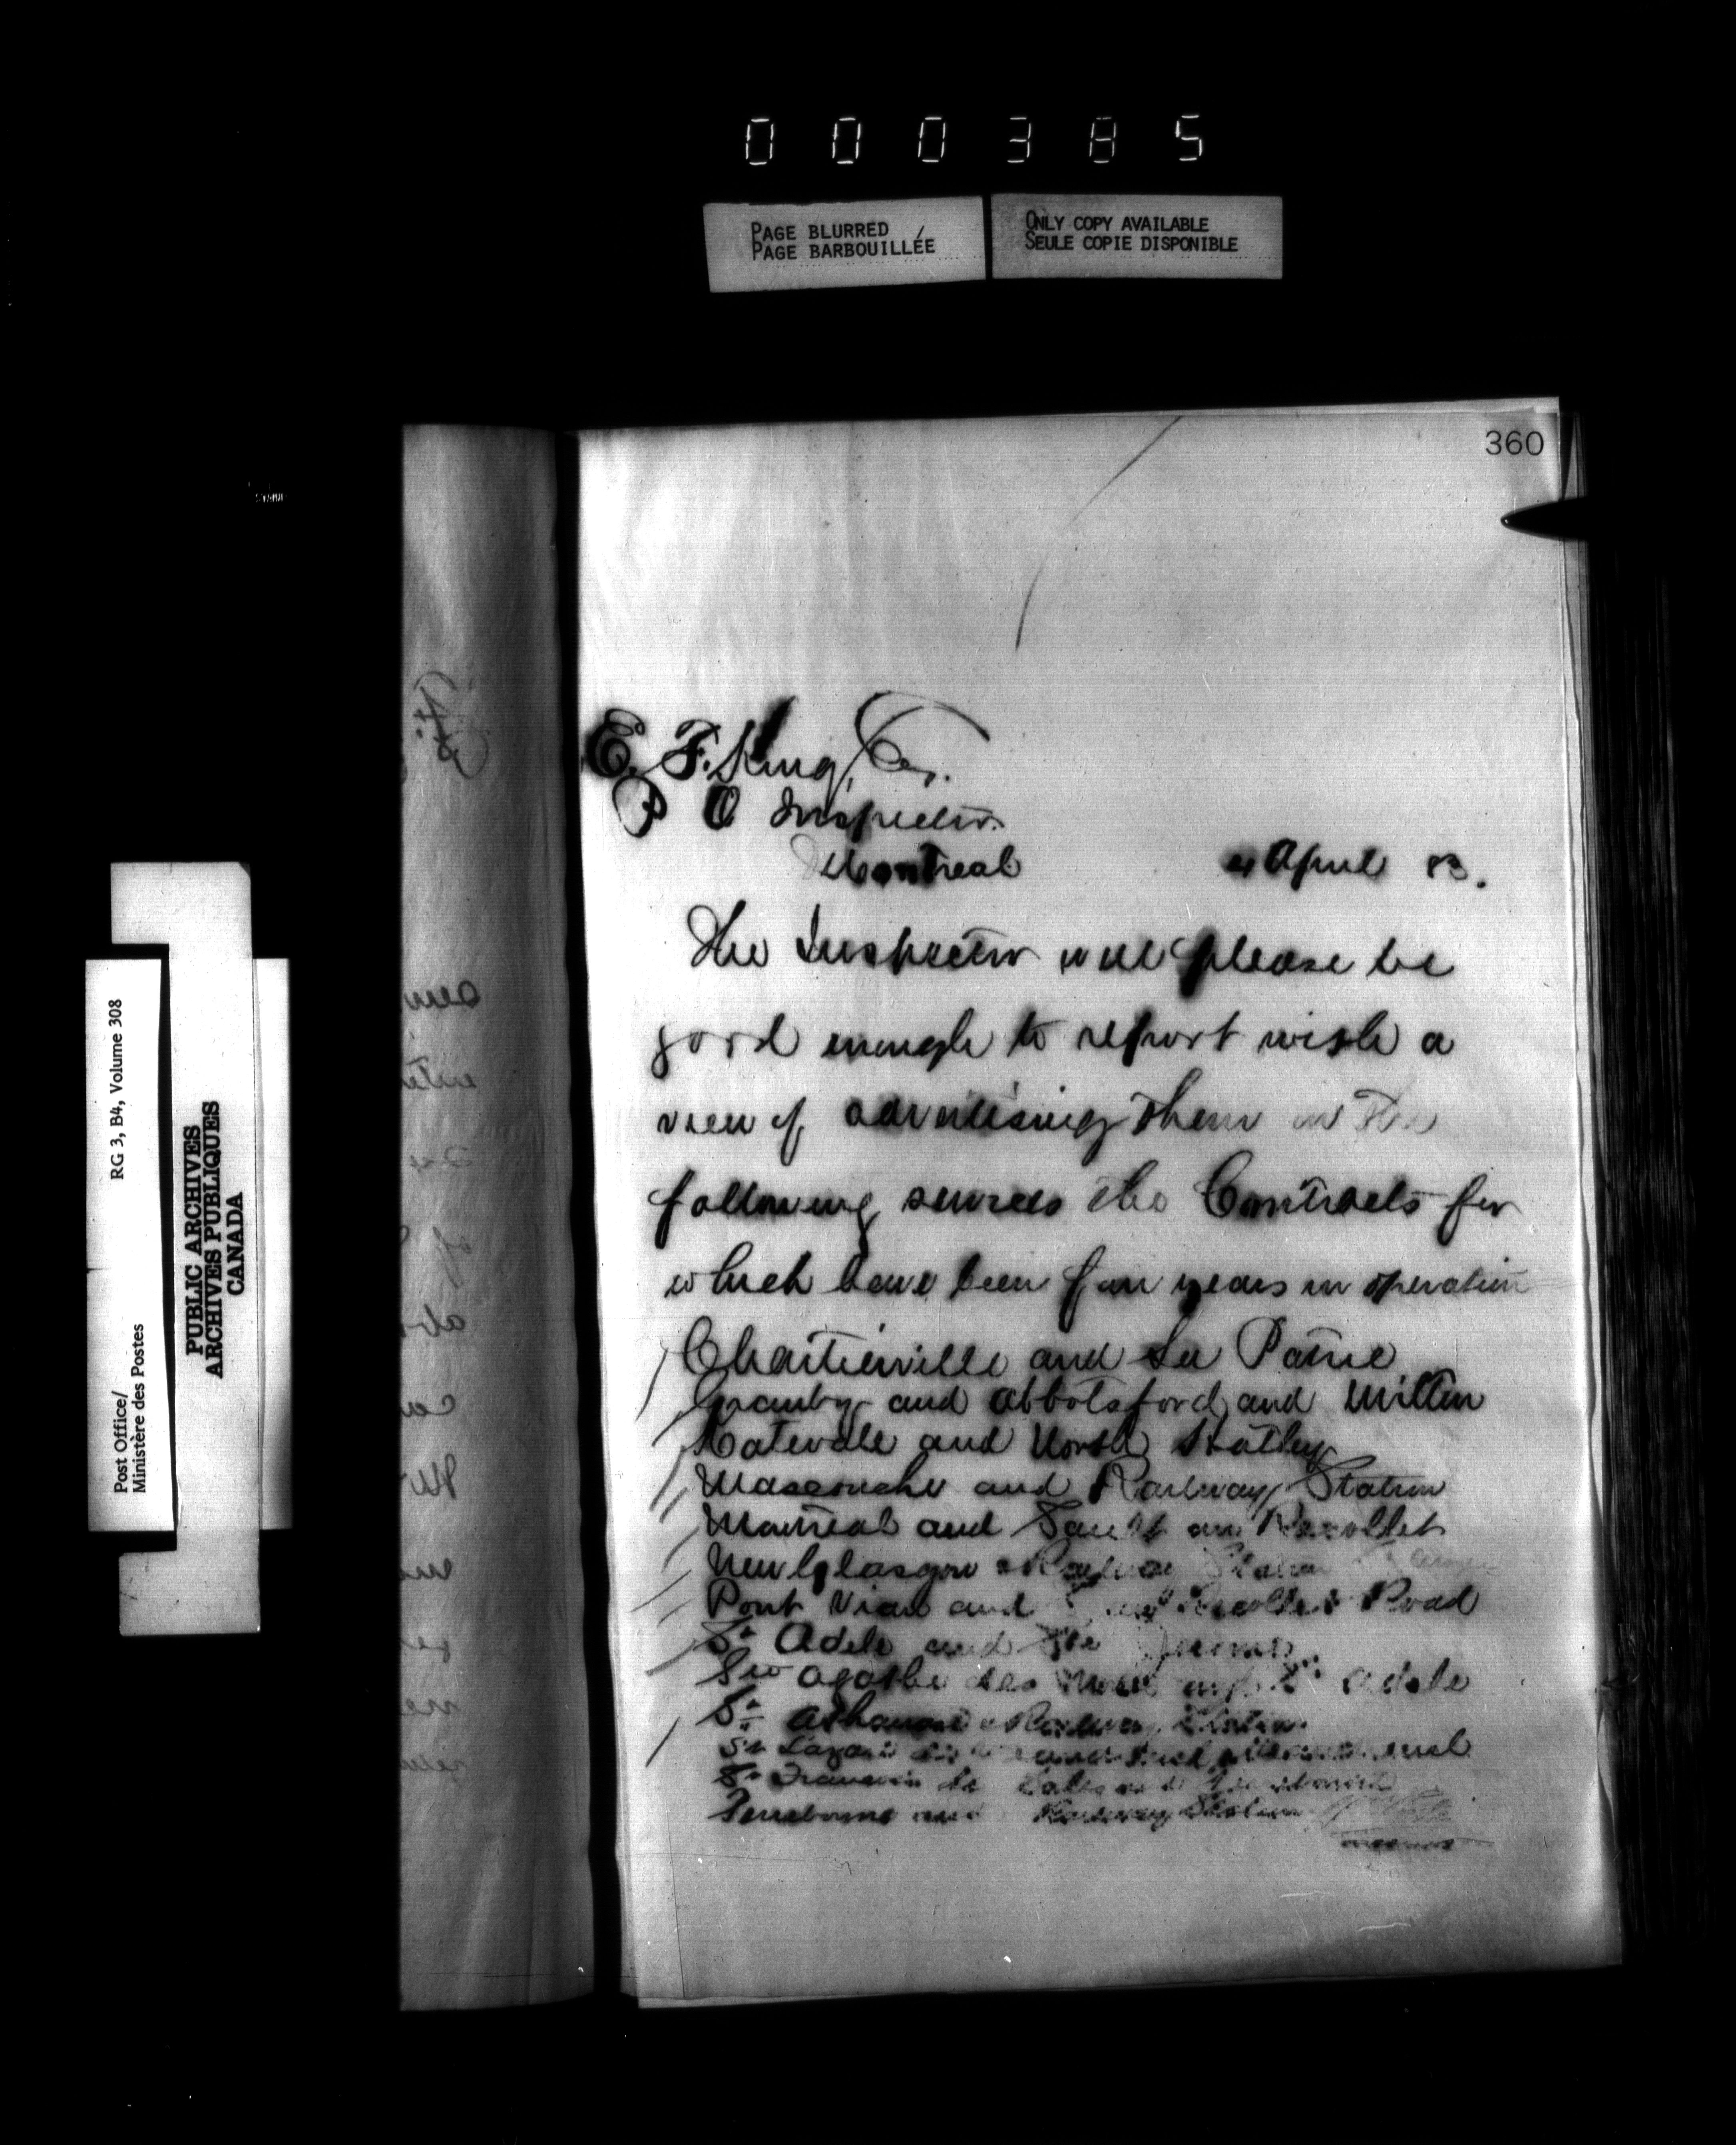 000385
PAGE BLURRED
PAGE BARBOUILLÉE
ONLY COPY AVAILABLE
SEULE COPIE DISPONIBLE
360
E. F. King, Esq.
P O Inspector
Montreal 4 April 83.
The Inspector will please be
good enough to report with a
view of advertising them on the
following services the Contracts for
which have been four years in operation
Chartierville and La Patrie
Granby and Abbotsford and Milton
Katevale and North Hatley
Mascouche and Railway Station
Montreal and Sault au Recollet
New Glasgow & Railway Station
Pont Viau and Recollet Road
St Adele and St Jerome
Ste Agathe des Monts and St Adele
St Athanase & Railway Station
St Lazare
St Francois de Sales and
Terrebonne and Railway Station
RG 3, B4, Volume 308
Post Office/
Ministère des Postes
PUBLIC ARCHIVES
ARCHIVES PUBLIQUES
CANADA